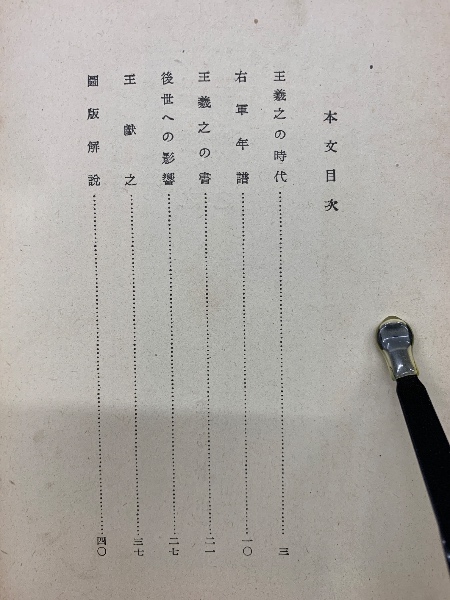 本文目次
王羲之の時代…………三
右軍年譜…………一〇
王羲之の書…………二一
後世への影響…………二七
王献之…………三七
圖版解說…………四〇